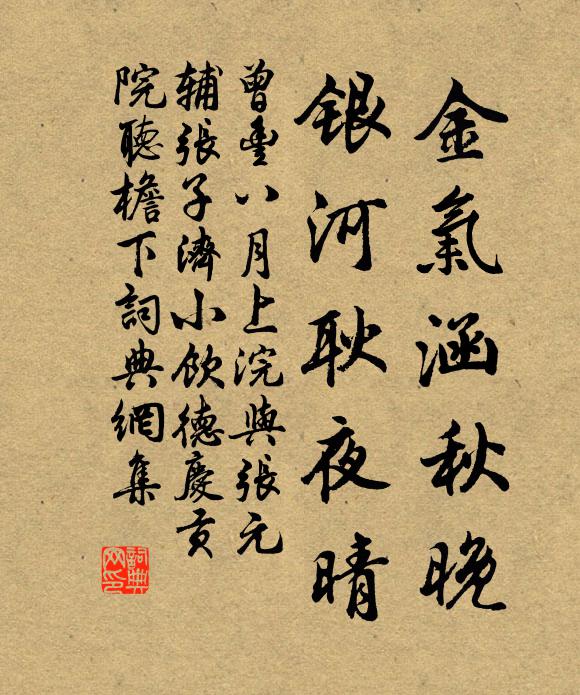 金氣涵秋晚
銀河耿夜晴
曾豐八月上浣與張元
辅張子濟小飲德慶貢
院聽檐下詞典網集
詞典网印